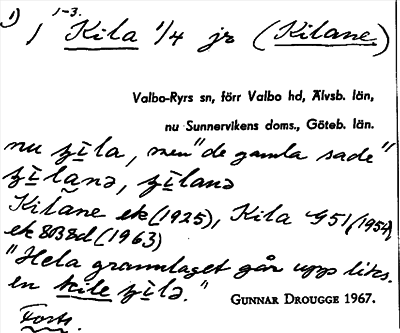 1) 1-3.
1 Kila 1/4 jr (Kilane)
Valbo-Ryrs sn, förr Valbo hd, Älvsb. län,
nu Sunnervikens doms., Göteb. län.
nu ȿīla, men "de gamla sade"
ȿīlanə, ȿīlanə
Kilane ek (1925), Kila G51 (1954)
ek 8B8d (1963)
"Hela grannlaget går upp liks.
en kile ȿīlə."
GUNNAR DROUGGE 1967.
Forts.